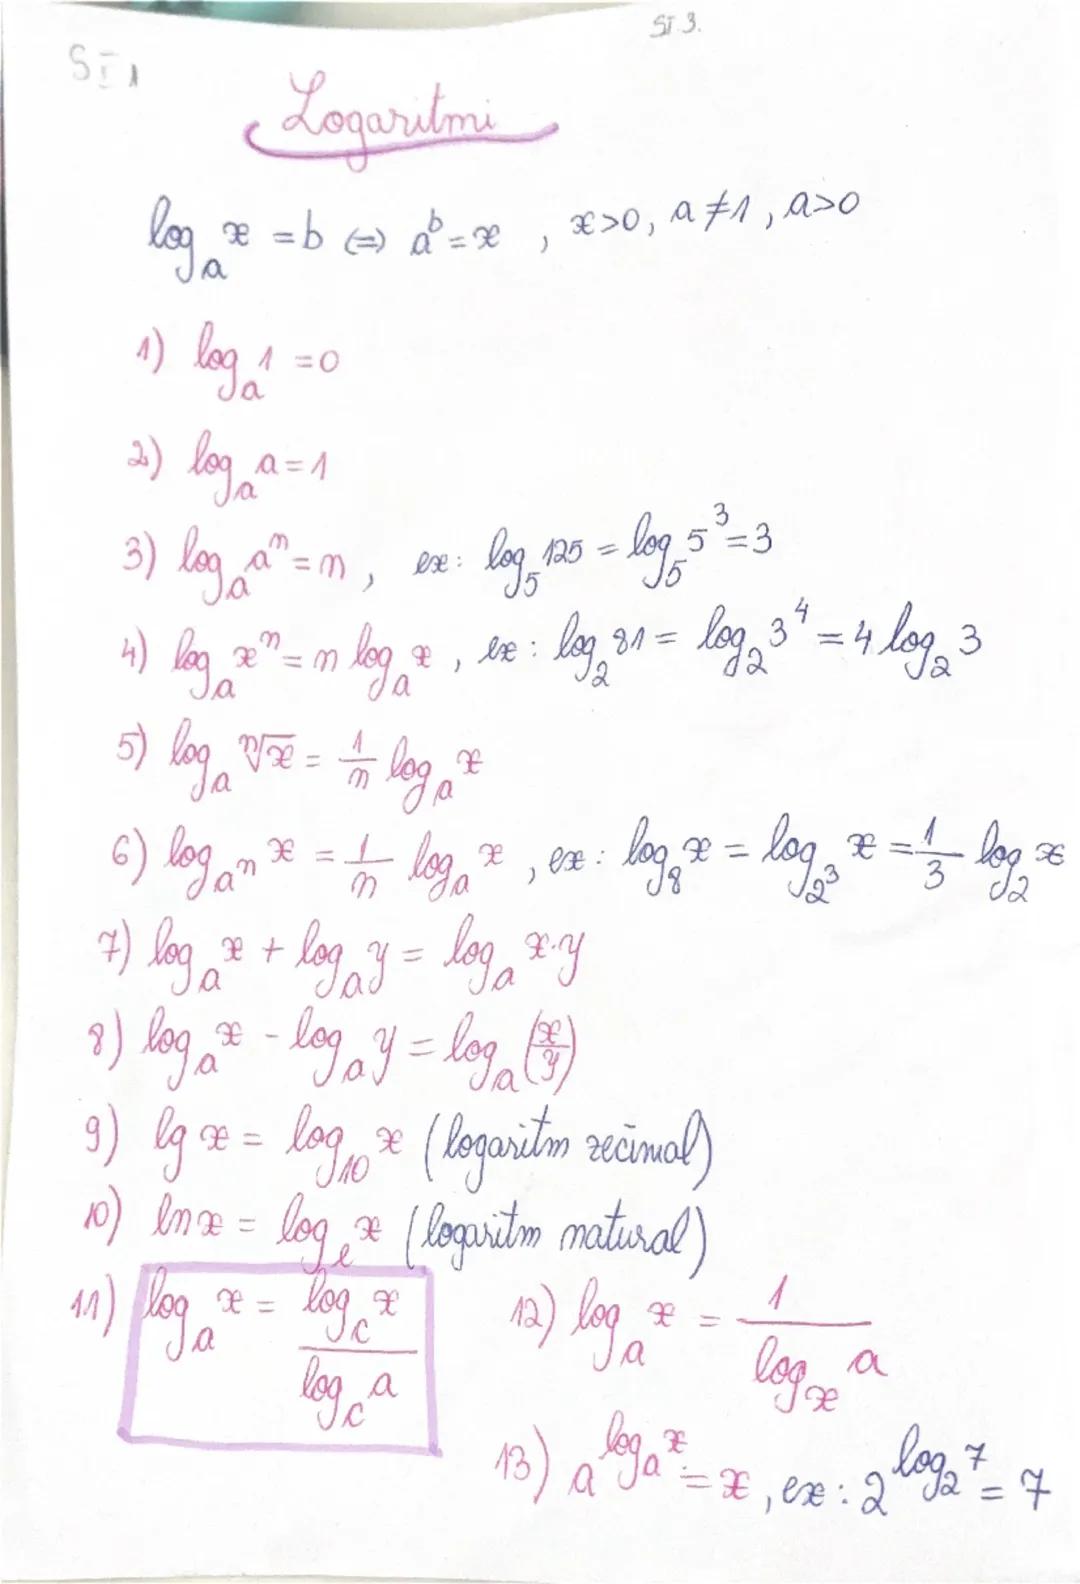 SI 3.
SI 1
Logaritmi
log_a x = b ⇔ a^b = x , x>0, a≠1, a>0
1) log_a 1 = 0
2) log_a a = 1
3) log_a a^n = n , ex: log_5 125 = log_5 5^3 = 3
4) log_a x^n = n log_a x , ex: log_2 81 = log_2 3^4 = 4 log_2 3
5) log_a ⁿ√x = 1/n log_a x
6) log_{a^n} x = 1/n log_a x , ex: log_8 x = log_{2^3} x = 1/3 log_2 x
7) log_a x + log_a y = log_a x·y
8) log_a x - log_a y = log_a (x/y)
9) lg x = log_10 x (logaritm zecimal)
10) ln x = log_e x (logaritm natural)
11) log_a x = log_c x / log_c a
12) log_a x = 1 / log_x a
13) a^{log_a x} = x, ex: 2^{log_2 7} = 7